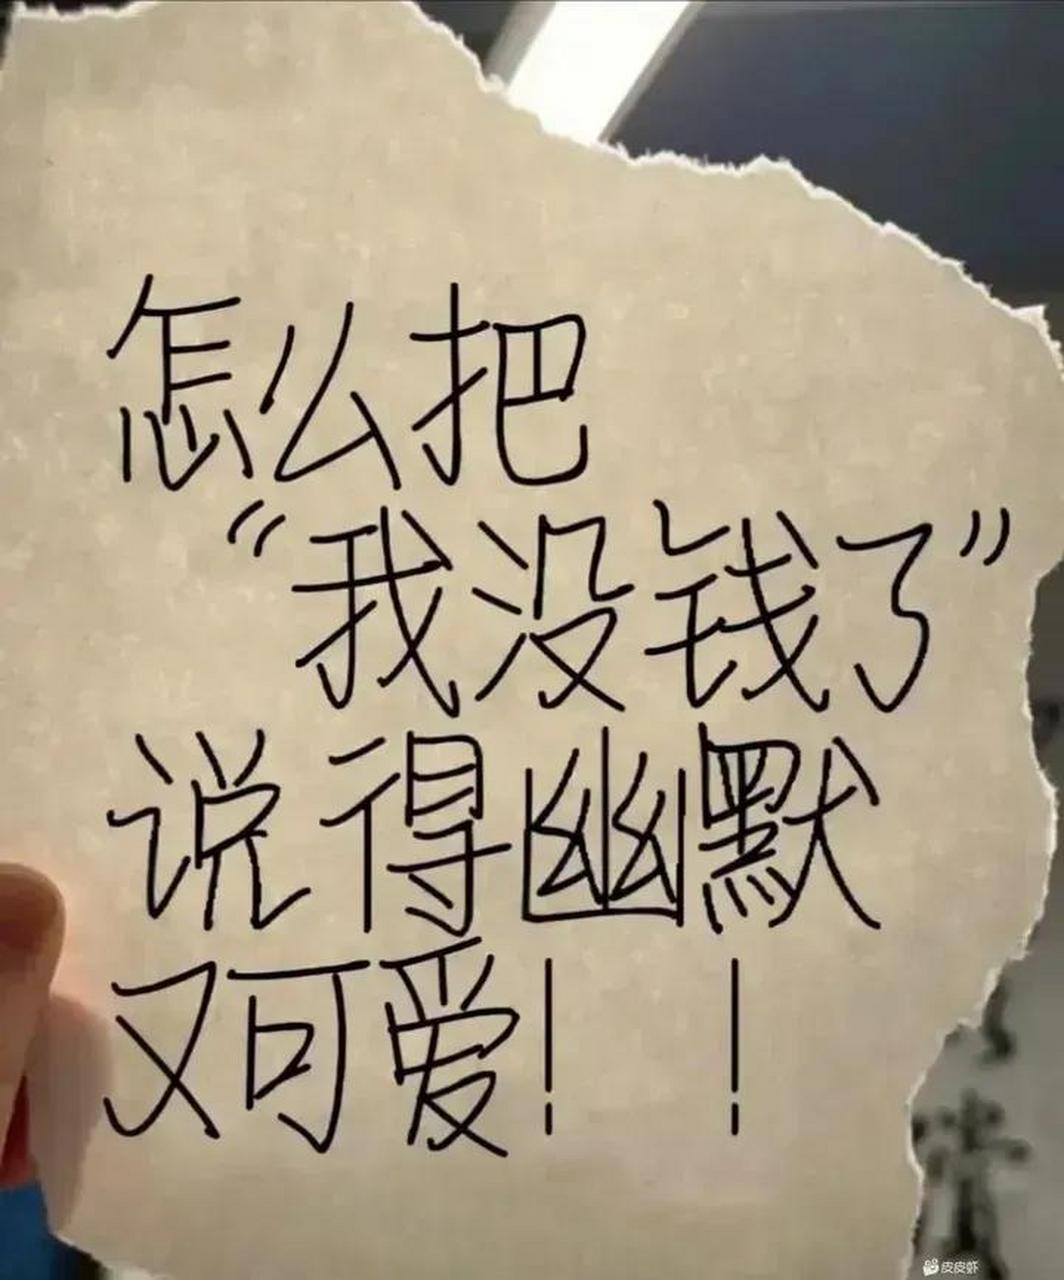 怎么把
“我没钱了”
说得幽默
又可爱！！
皮皮虾